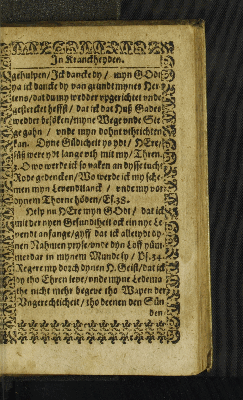 In Kranckheyden.
gehulpen / Ick dancke dy / myn GOdt
ya ick dancke dy van grundt mynes Her-
tens / dat du my wedder upgerichtet vnde
gestercket heffst / dat ick dat Huß Gades
wedder besöken / myne Wege vnde Ste-
ge gahn / vnde myn dohnt vthrichten
kan. Dyne Güdicheit ys ydt / HEre /
süß were ydt lange vth mit my / Thren.
3. O wo werde ick so vaken an dysse tucht
Rode gedencken / Wo werde ick my sche-
men myn Levendtlanck / vnde my vor
dynem Thorne höden / Esa. 38.
Help nu HEre myn GOdt / dat ick
mit der nyen Gesundtheit ock ein nye Le-
vendt anfange / gyff dat ick alletydt dy-
nen Nahmen pryse / vnde dyn Loff yüm-
merdar in mynem Munde sy / Ps. 34.
Regere my dorch dynen H. Geist / dat ick
dy tho Ehren leve / vnde myne Ledema-
the nicht mehr begeve tho Wapen der
Vngerechticheit / tho deenen den Sün-
den